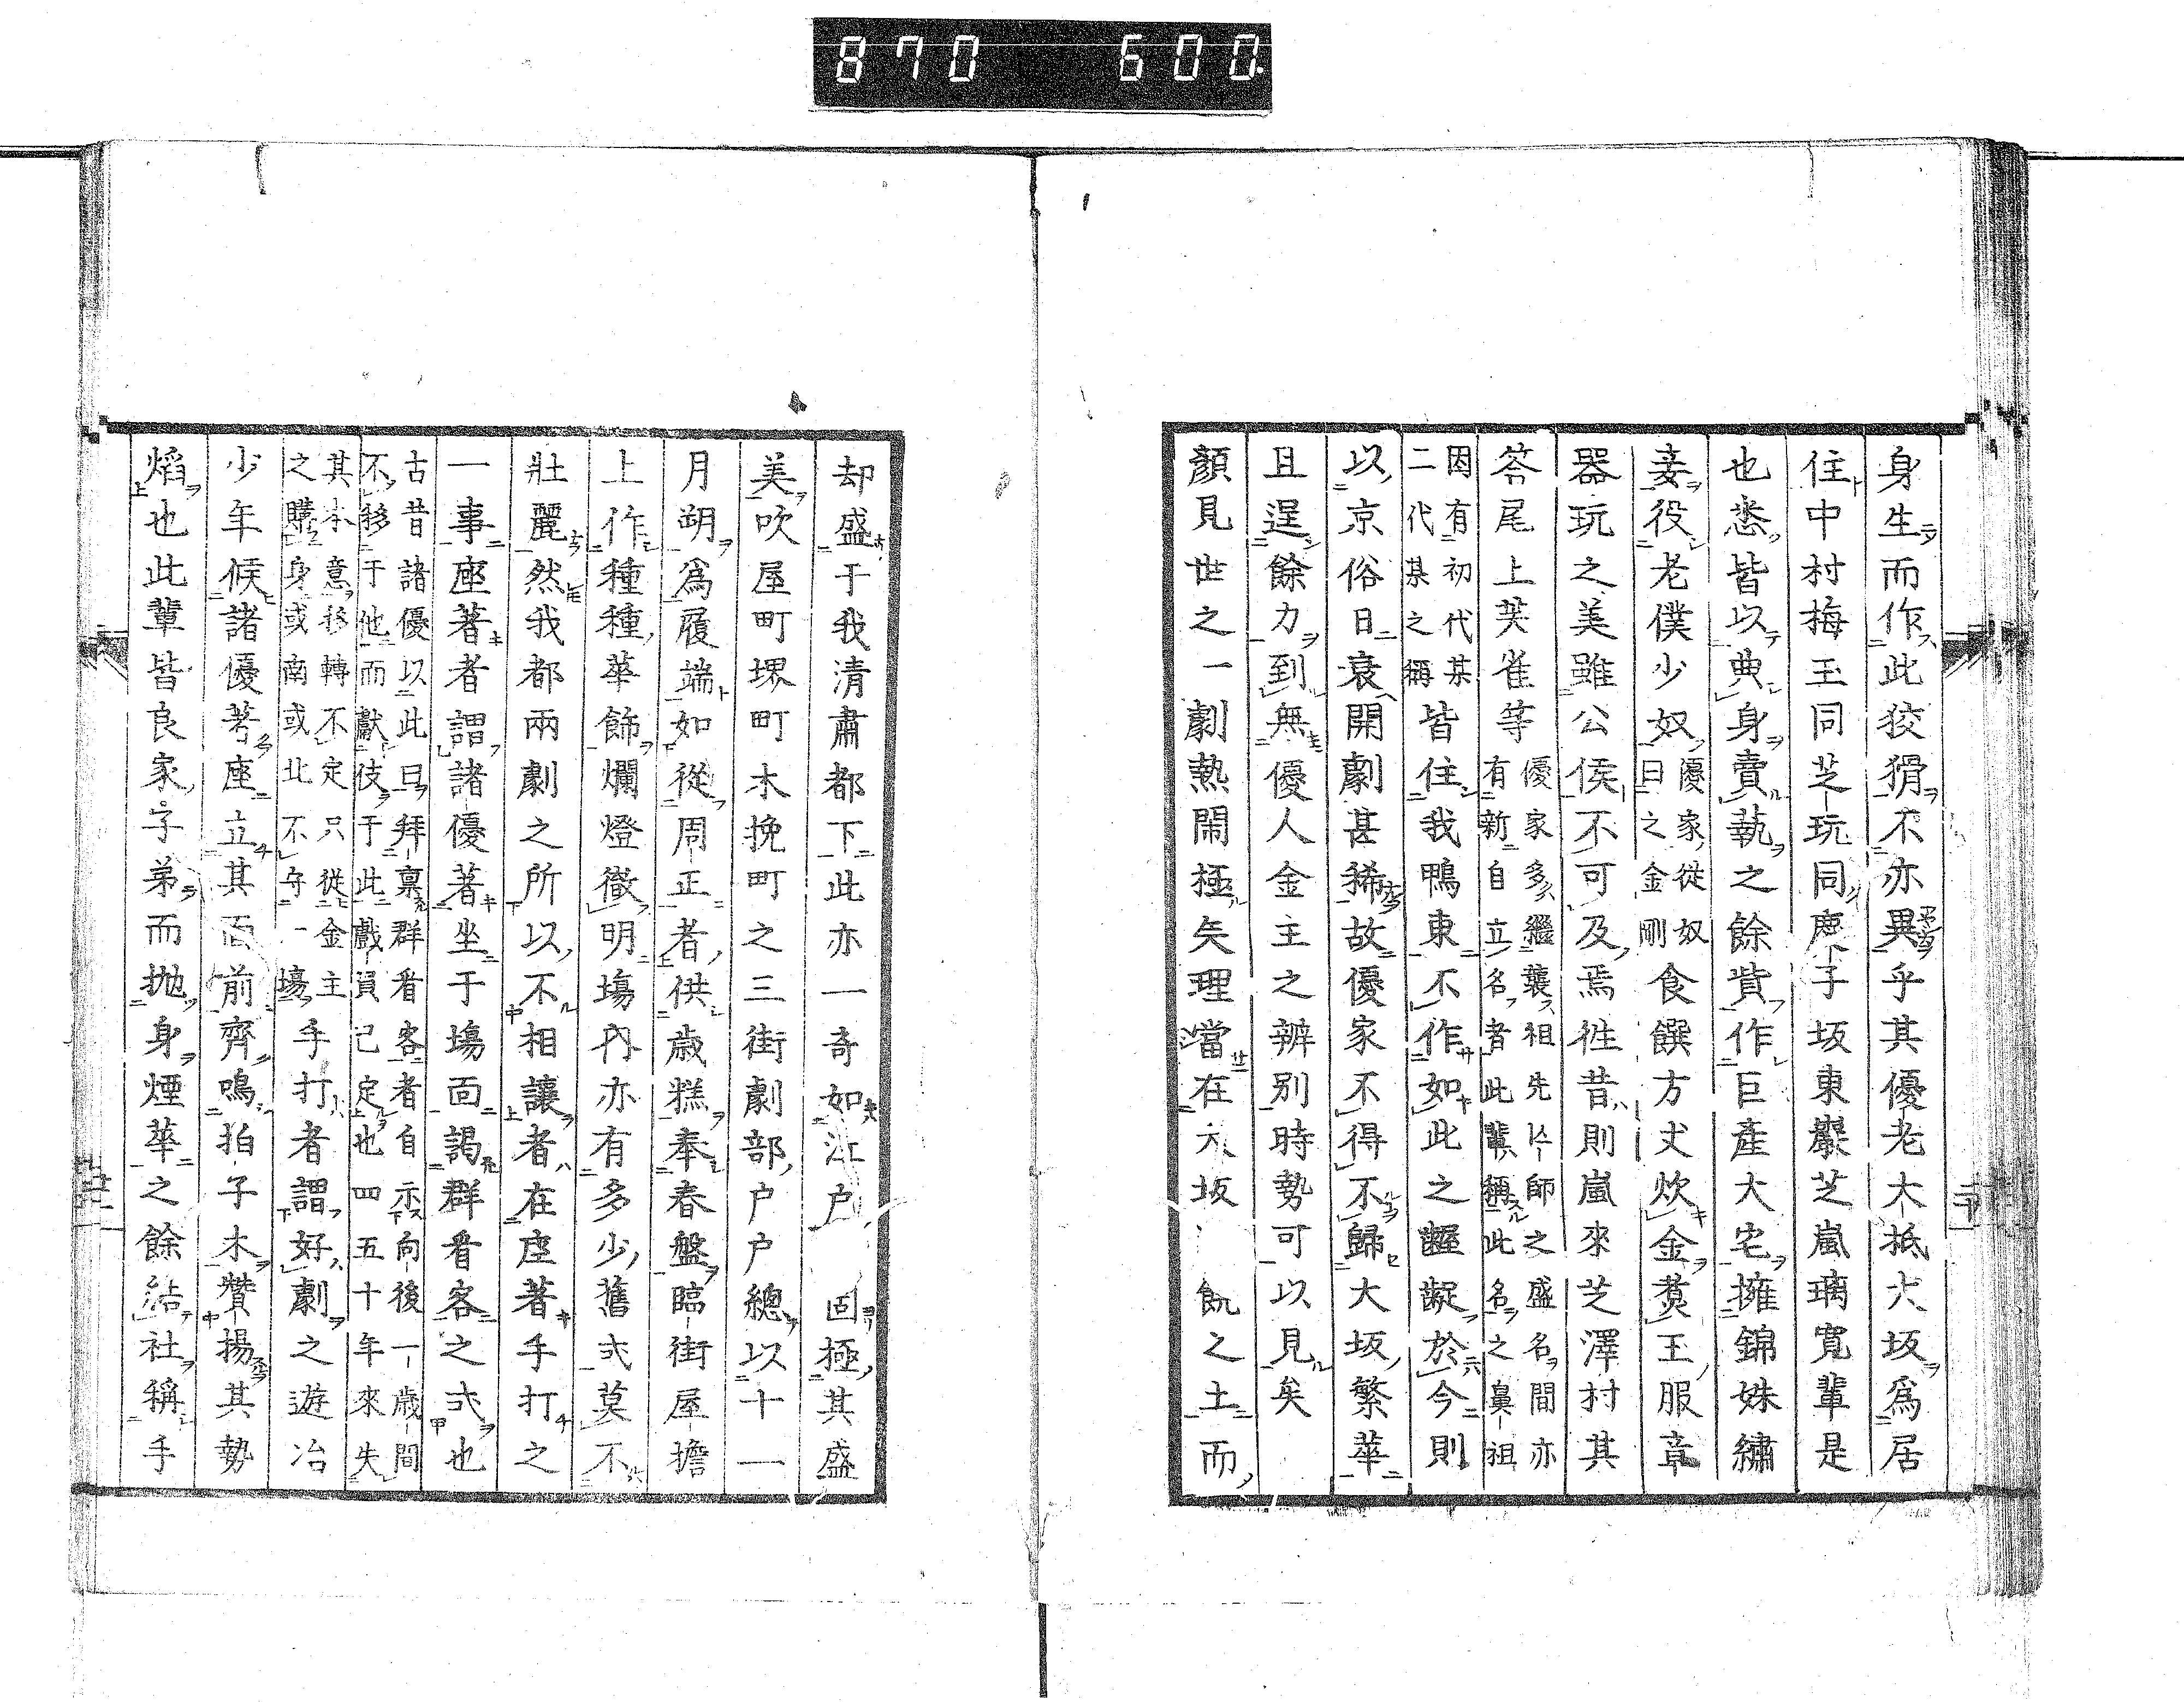 870 600.
身生而作此狡猾不亦異乎其優老大抵大坂爲居
住中村梅玉同芝玩同鹿子坂東巖芝嵐璃寬輩是
也悉皆以典身賣執之餘貲作巨產大宅擁錦姝繡
妾役老僕少奴優家從奴
曰之金剛食饌方丈炊金煑玉服章
器玩之美雖公侯不可及焉徃昔則嵐來芝澤村其
答尾上芙雀等優家多繼襲祖先公師之盛名間亦
有新自立名者此輩稱此名之鼻祖
因有初代某
二代某之稱皆住我鴨東不作如此之齷齪於今則
以京俗日衰開劇甚稀故優家不得不歸大坂繁華
且逞餘力到無優人金主之辨别時勢可以見矣
顏見世之一劇熱閙極矣理當在大坂 飢之土而
却盛于我清肅都下此亦一奇如江户 固極其盛
美吹屋町堺町木挽町之三街劇部户户總以十一
月朔爲履端如從周正者供歲糕奉春盤臨街屋擔
上作種種華飾爛燈徹明塲内亦有多少舊式莫不
壯麗然我都兩劇之所以不相讓者在座著手打之
一事座著者謂諸優著坐于塲面謁群看客之式也
古昔諸優以此曰拜禀群看客者自示向後一歲間
不移于他而獻伎于此戲員己定也四五十年來失
其本意移轉不定只從金主
之購身或南或北不守一塲手打者謂好劇之遊冶
少年候諸優著座立其面前齊鳴拍子木贊揚其勢
焰也此輩皆良家子弟而抛身煙華之餘結社稱手